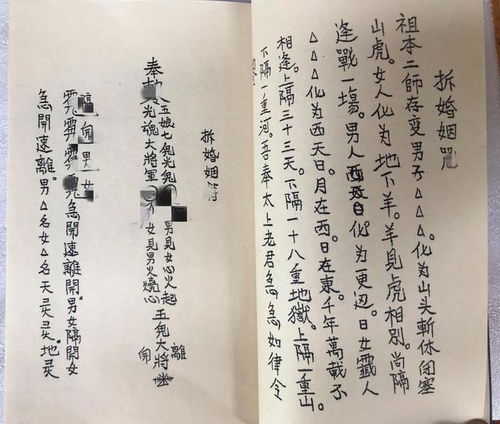 拆婚姻
祖本二師存变男子△△△。化为山头斬休闭塞
山虎。女人化为地下羊。羊見虎相別。尚隔
逢戰一塲。男人西日化为更边。日女靈人
△△△化为西天日。月在西。日在東。千年萬载不
相逢。上隔三十三天。下隔一十八重地獄。上隔一重山。
下隔一重河。吾奉太上老君急急如律令
拆婚姻
奉
玉娘七鬼光鬼 男見女心火起
光魂大將軍 女見男火燒心 玉鬼大將
離
男女
急開速離開男女隔開女
急開速離。男△名女△名天灵灵。地灵